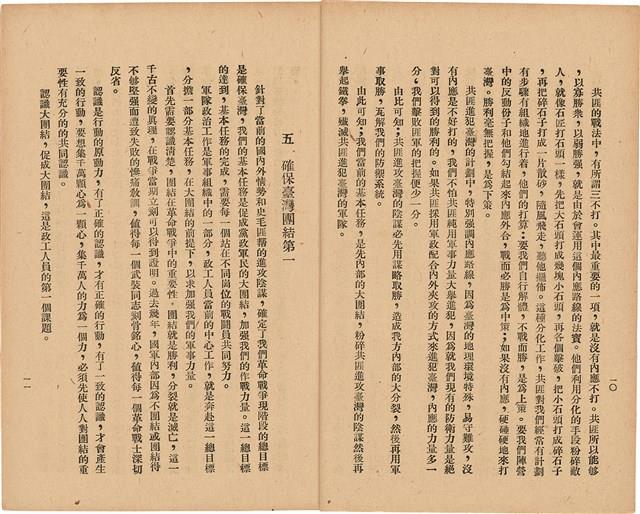 一〇
共匪的戰法中，有所謂三不打。其中最重要的一項，就是沒有內應不打。共匪所以能够
以寡勝衆，以弱勝强，就是由於會運用這個內應路線的法寶。他們利用分化的手段粉碎敵
人，就像石匠打石頭一樣，先把大石頭打成幾塊小石頭，再各個擊破，把小石頭打成碎石子
，再把碎石子打成一片散砂，隨風飛走，聽他擺佈。這種分化工作，共匪對我們經常有計劃
有步驟有組織地進行着，他們的打算：要我們自行解體，不戰而勝，是爲上策。要我們陣營
中的反動份子和他們勾結起來內應外合，戰而必勝是爲中策；如果沒有內應，硬碰硬地來打
臺灣。勝利毫無把握，是爲下策。
共匪進犯臺灣的計劃中，特別强調內應路線，因爲臺灣的地理環境特殊，易守難攻，沒
有內應是不好打的。我們不怕共匪純用軍事力量大舉進犯，因爲就我們現有的防衛力量是絕
對可以得到的勝利的。如果共匪採用軍政配合內外夾攻的方式來進犯臺灣，內應的力量多一
分，我們擊敗匪軍的把握便少一分。
由此可知；共匪進攻臺灣的陰謀必先用謀略取勝，造成我方內部的大分裂，然後再用軍
事取勝，瓦解我們的防禦系統。
由此可知；我們當前的基本任務，是先內部的大團結，粉碎共匪進攻臺灣的陰謀然後再
舉起鐵拳，殲滅共匪進犯臺灣的軍隊。
五　確保臺灣團結第一
針對了當前的國內外情勢和史毛匪幫的進攻陰謀，確定了我們革命戰爭現階段的總目標
是確保臺灣，我們的基本任務是促成黨政軍民的大團結，加强我們的作戰力量。這一總目標
的達到，基本任務的完成，需要每一個站在不同崗位的戰鬪員共同努力。
軍隊政治工作是軍事組織中的一部分，政工人員當前的中心工作，就是奔赴這一總目標
，分擔一部分基本任務，在大團結的前提下，以求加强我們的作戰力量。
首先需要認識清楚，團結在革命戰爭中的重要性。團結就是勝利，分裂就是滅亡，這一
千古不變的真理，在戰爭當頭立刻可以得到證明。過去幾年，國軍內部因爲不團結或團結得
不够堅强而遭致失敗的慘痛教訓，值得每一個武裝同志刻骨銘心，值得每一個革命戰士深切
反省。
認識是行動的原動力，有了正確的認識，才有正確的行動，有了一致的認識，才會產生
一致的行動，要想集千萬顆心爲一顆心，集千萬人的力爲一個力，必須先使人人對團結的重
要性有充分的的共同認識。
認識大團結，促成大團結，這是政工人員的第一個課題。
一一